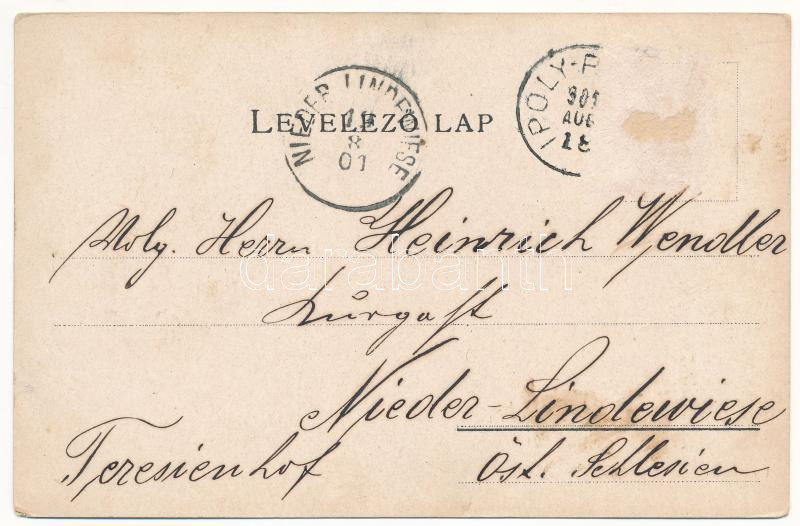 NIEDER LINDEWIESE
19
8
01
IPOLY-P
901
AUG
18
LEVELEZŐ LAP
Herrn Heinrich Wendler
darabanth
Kurgast
Nieder-Lindewiese
Teresienhof Öst. Schlesien